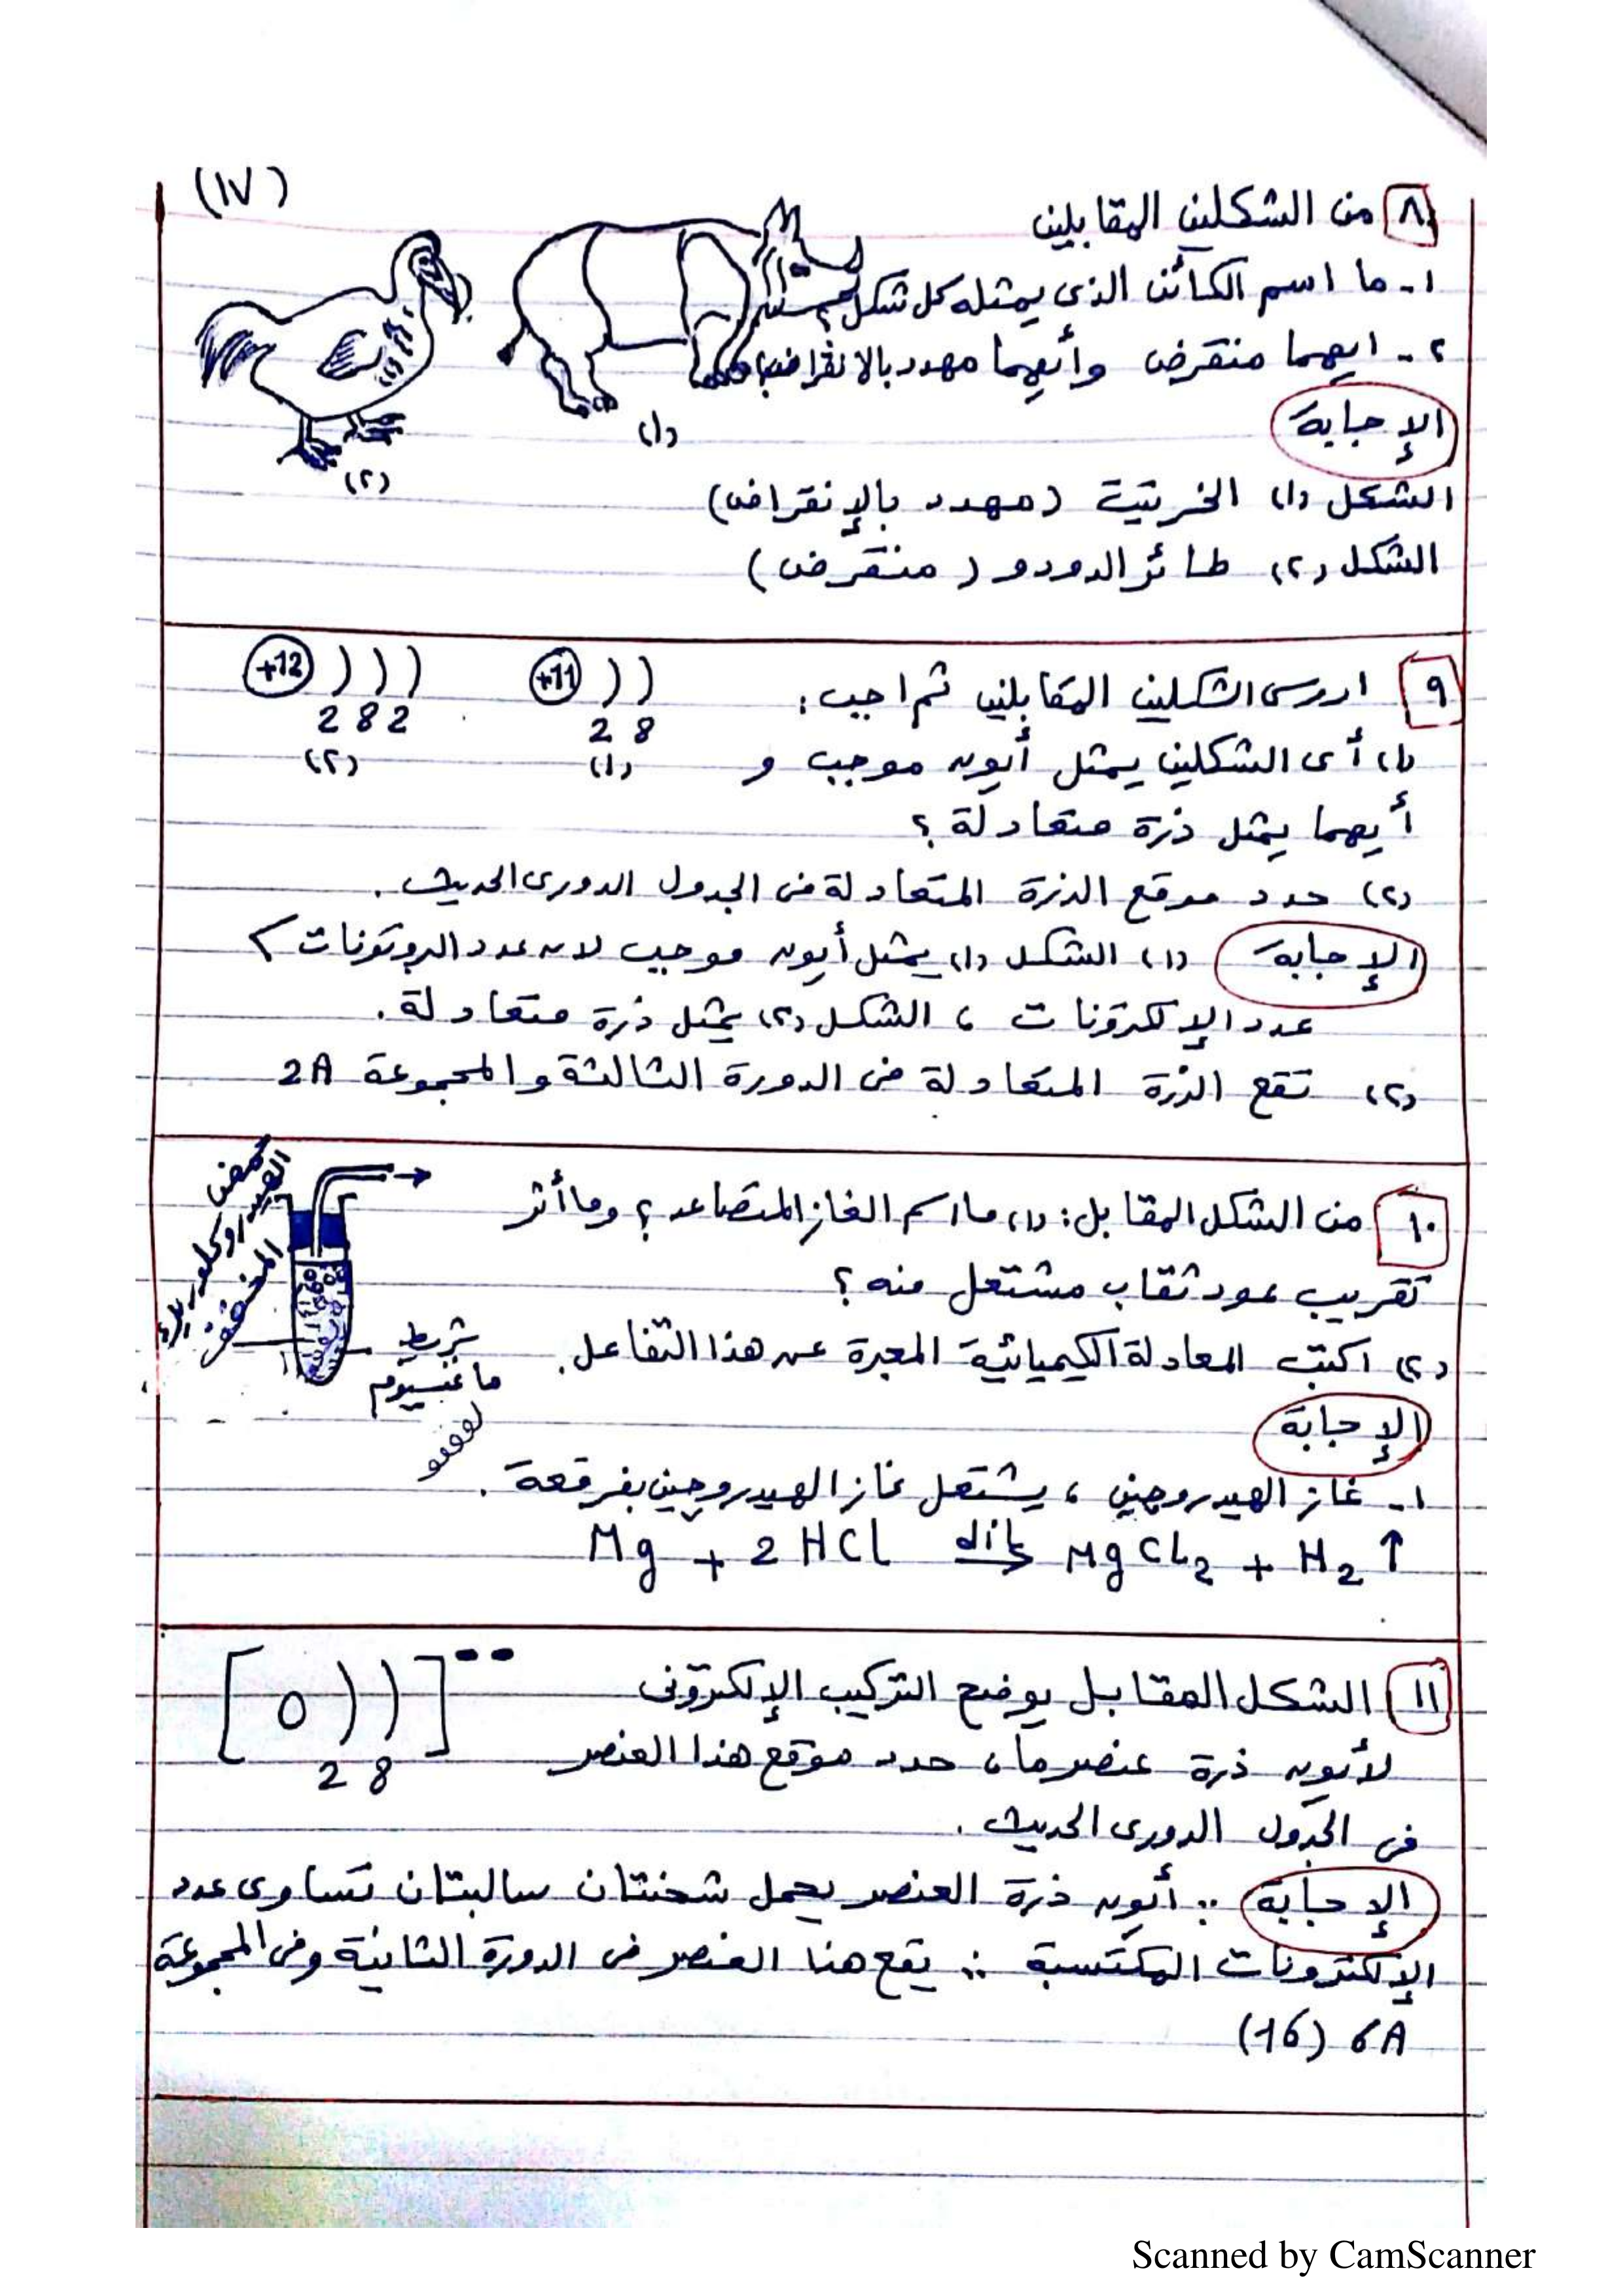 (١٧)
٨ من الشكلين المقابلين
١- ما اسم الكائن الذى يمثله كل شكل؟
٢- ايهما منقرض وأيهما مهدد بالانقراض؟
(١)
(٢)
الإجابة
الشكل (١) الخرتيت (مهدد بالإنقراض)
الشكل (٢) طائر الدودو (منقرض)
٩ ادرس الشكلين المقابلين ثم اجب:
+11
2 8
(١)
+12
2 8 2
(٢)
(١) أى الشكلين يمثل أيون موجب و
أيهما يمثل ذرة متعادلة؟
(٢) حدد موقع الذرة المتعادلة فى الجدول الدورى الحديث.
الإجابة (١) الشكل (١) يمثل أيون موجب لان عدد البروتونات >
عدد الإلكترونات، الشكل (٢) يمثل ذرة متعادلة.
(٢) تقع الذرة المتعادلة فى الدورة الثالثة والمجموعة 2A
١٠ من الشكل المقابل: (١) ما اسم الغاز المتصاعد؟ وما أثر
تقريب عود ثقاب مشتعل منه؟
(٢) اكتب المعادلة الكيميائية المعبرة عن هذا التفاعل.
حمض
الهيدروكلوريك
المخفف
شريط
ماغنسيوم
الإجابة
١- غاز الهيدروجين، يشتعل غاز الهيدروجين بفرقعة.
Mg + 2 HCl dil→ MgCl₂ + H₂ ↑
١١ الشكل المقابل يوضح التركيب الإلكترونى
[ O ) ) ]--
2 8
لأيون ذرة عنصر ما، حدد موقع هذا العنصر
فى الجدول الدورى الحديث.
الإجابة ∵ أيون ذرة العنصر يحمل شحنتان سالبتان تساوى عدد
الإلكترونات المكتسبة ∴ يقع هذا العنصر فى الدورة الثانية وفى المجموعة
6A (16)
Scanned by CamScanner